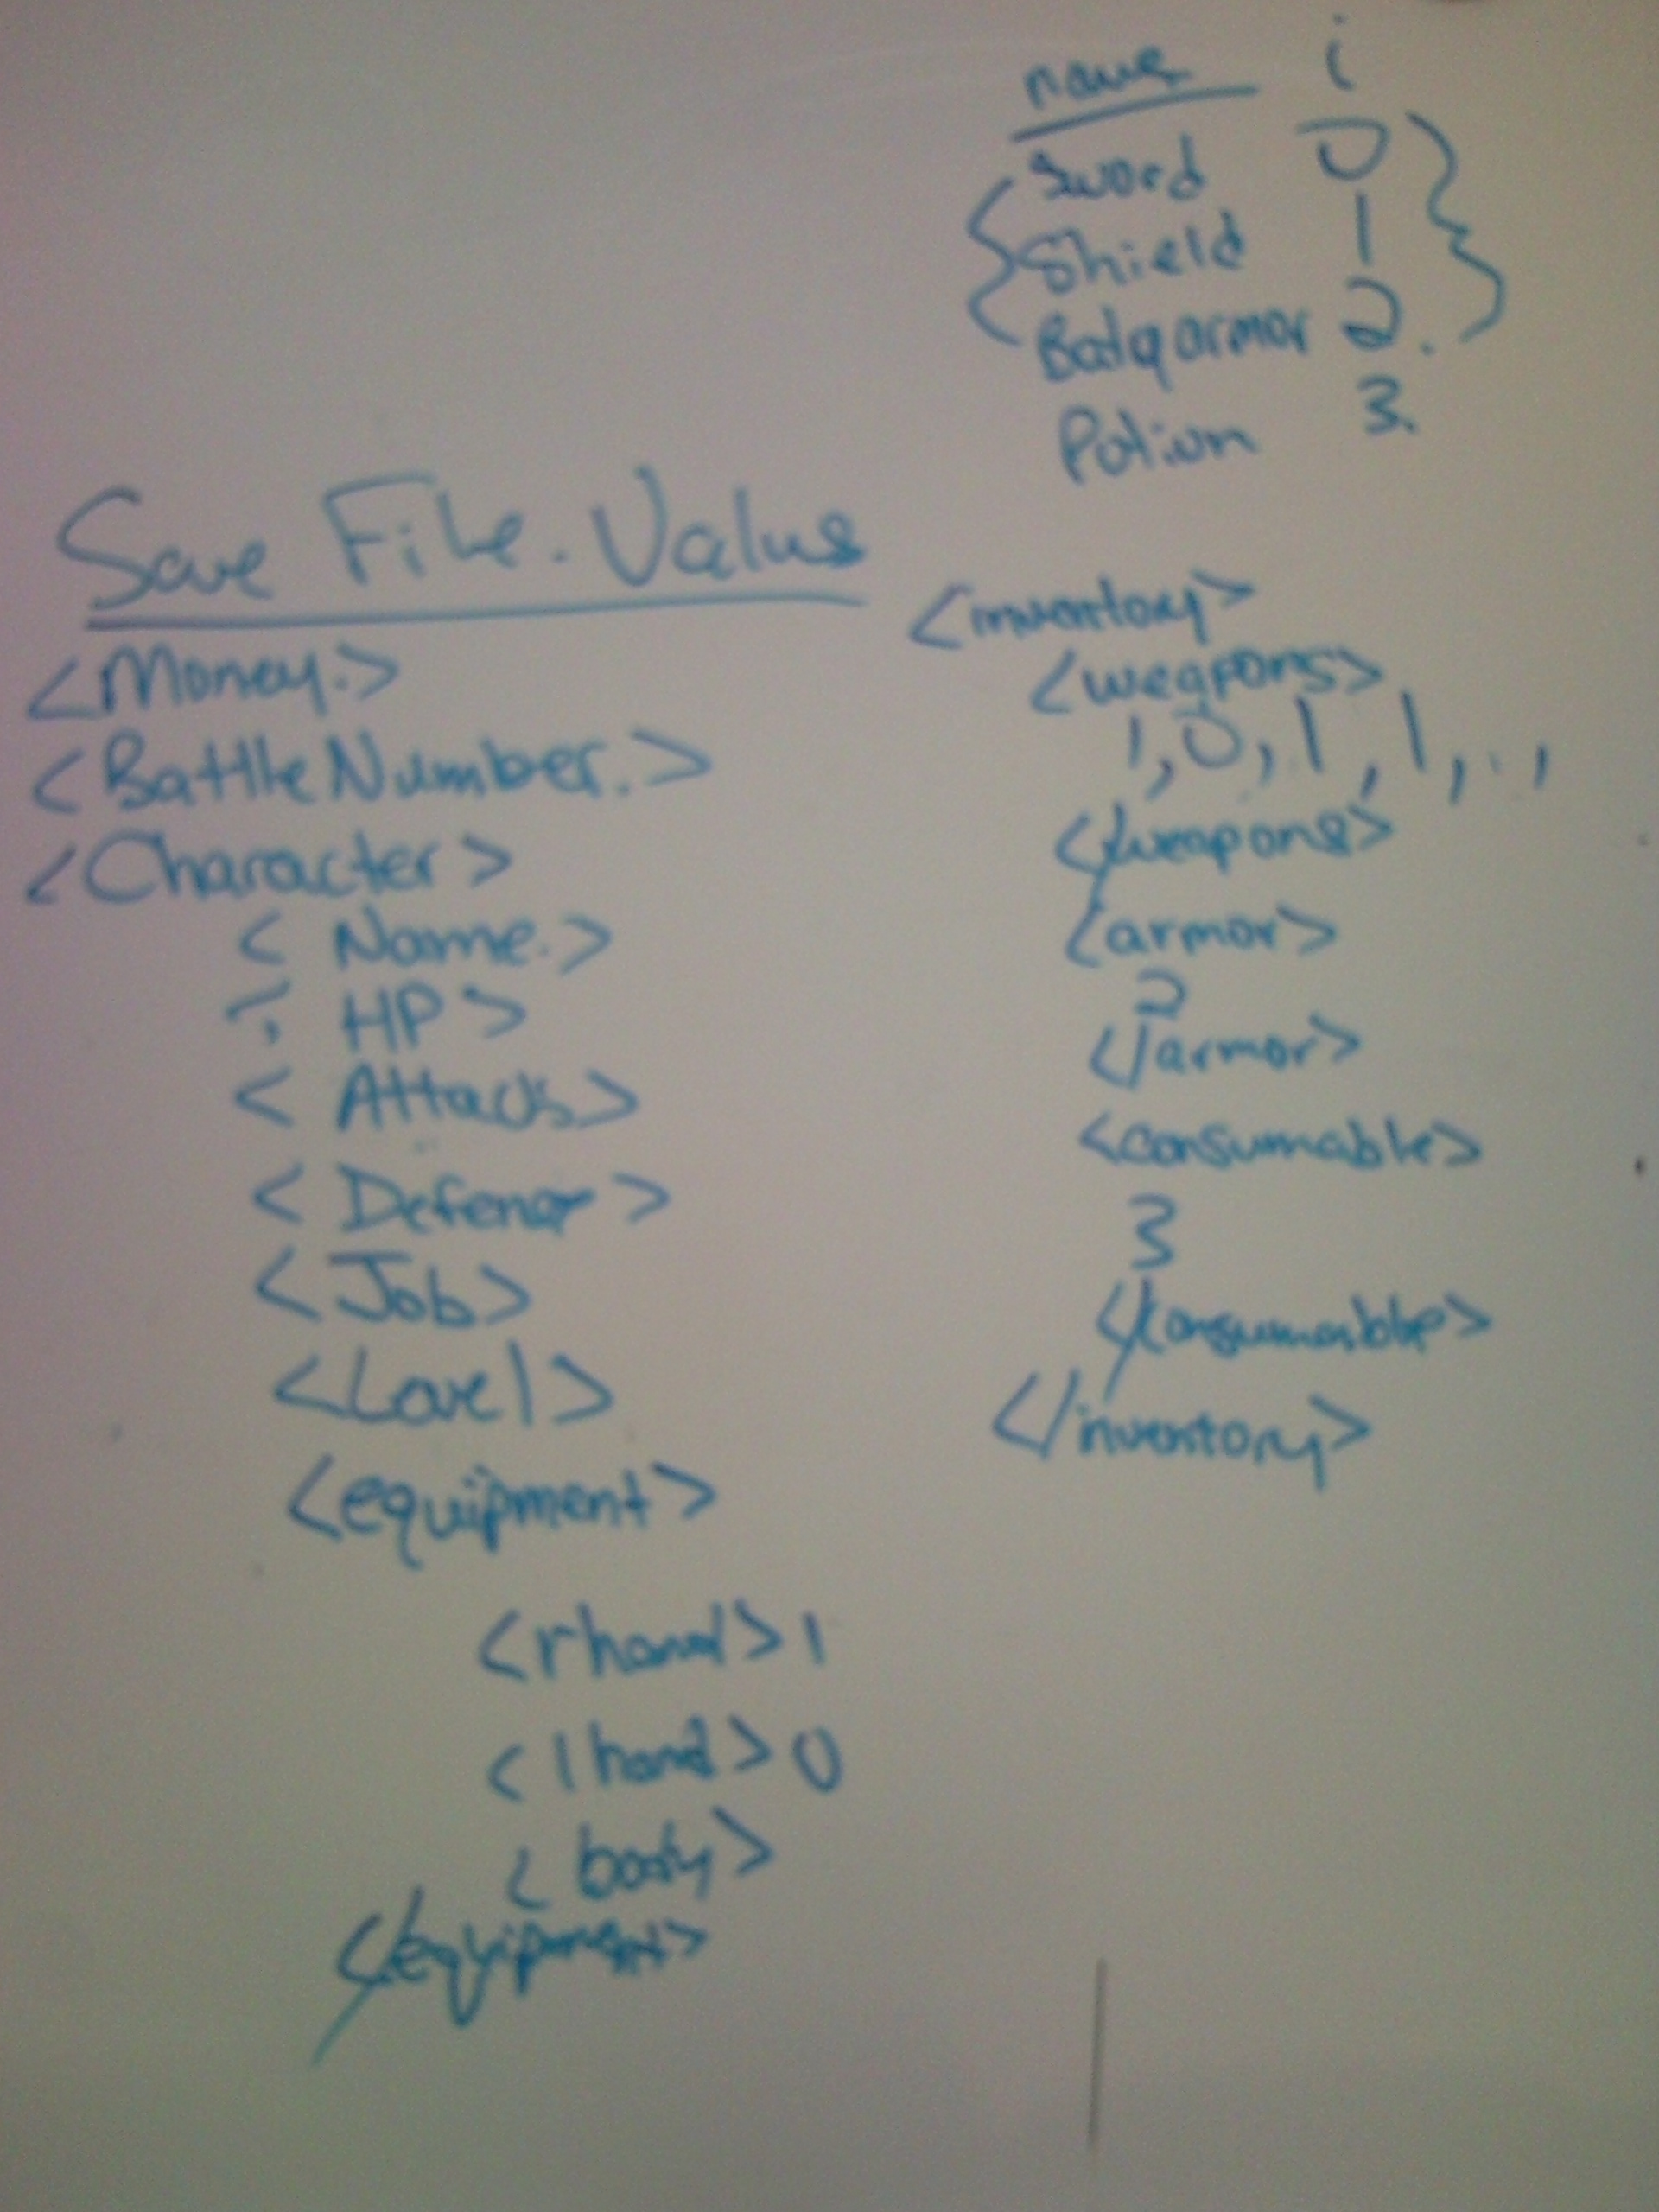 name i
Sword 0
Shield 1
Body armor 2.
Potion 3.
Save File Values
<Money>
<BattleNumber>
<Character>
< Name >
< HP >
< Attack >
< Defense >
< Job >
<Level>
<equipment>
<rhand> 1
<lhand> 0
<body>
</equipment>
<inventory>
<weapons>
1, 0, 1, 1, . . ,
</weapons>
<armor>
2
</armor>
<consumable>
3
</consumable>
</inventory>